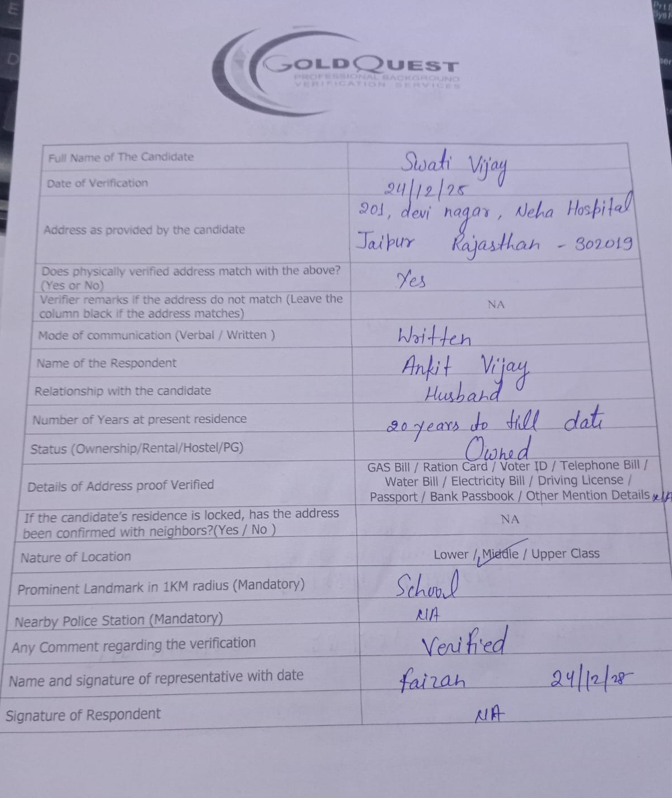 GOLDQUEST
PROFESSIONAL BACKGROUND
VERIFICATION SERVICES
Full Name of The Candidate Swati Vijay
Date of Verification 24/12/25
Address as provided by the candidate 201, devi nagar, Neha Hospital
Jaipur Rajasthan - 302019
Does physically verified address match with the above?
(Yes or No) Yes
Verifier remarks if the address do not match (Leave the
column black if the address matches) NA
Mode of communication (Verbal / Written ) Written
Name of the Respondent Ankit Vijay
Relationship with the candidate Husband
Number of Years at present residence 20 years to till date
Status (Ownership/Rental/Hostel/PG) Owned
Details of Address proof Verified GAS Bill / Ration Card / Voter ID / Telephone Bill /
Water Bill / Electricity Bill / Driving License /
Passport / Bank Passbook / Other Mention Details N/A
If the candidate's residence is locked, has the address
been confirmed with neighbors?(Yes / No ) NA
Nature of Location Lower / Middle / Upper Class
Prominent Landmark in 1KM radius (Mandatory) School
Nearby Police Station (Mandatory) N/A
Any Comment regarding the verification Verified
Name and signature of representative with date faizan 24/12/25
Signature of Respondent NA